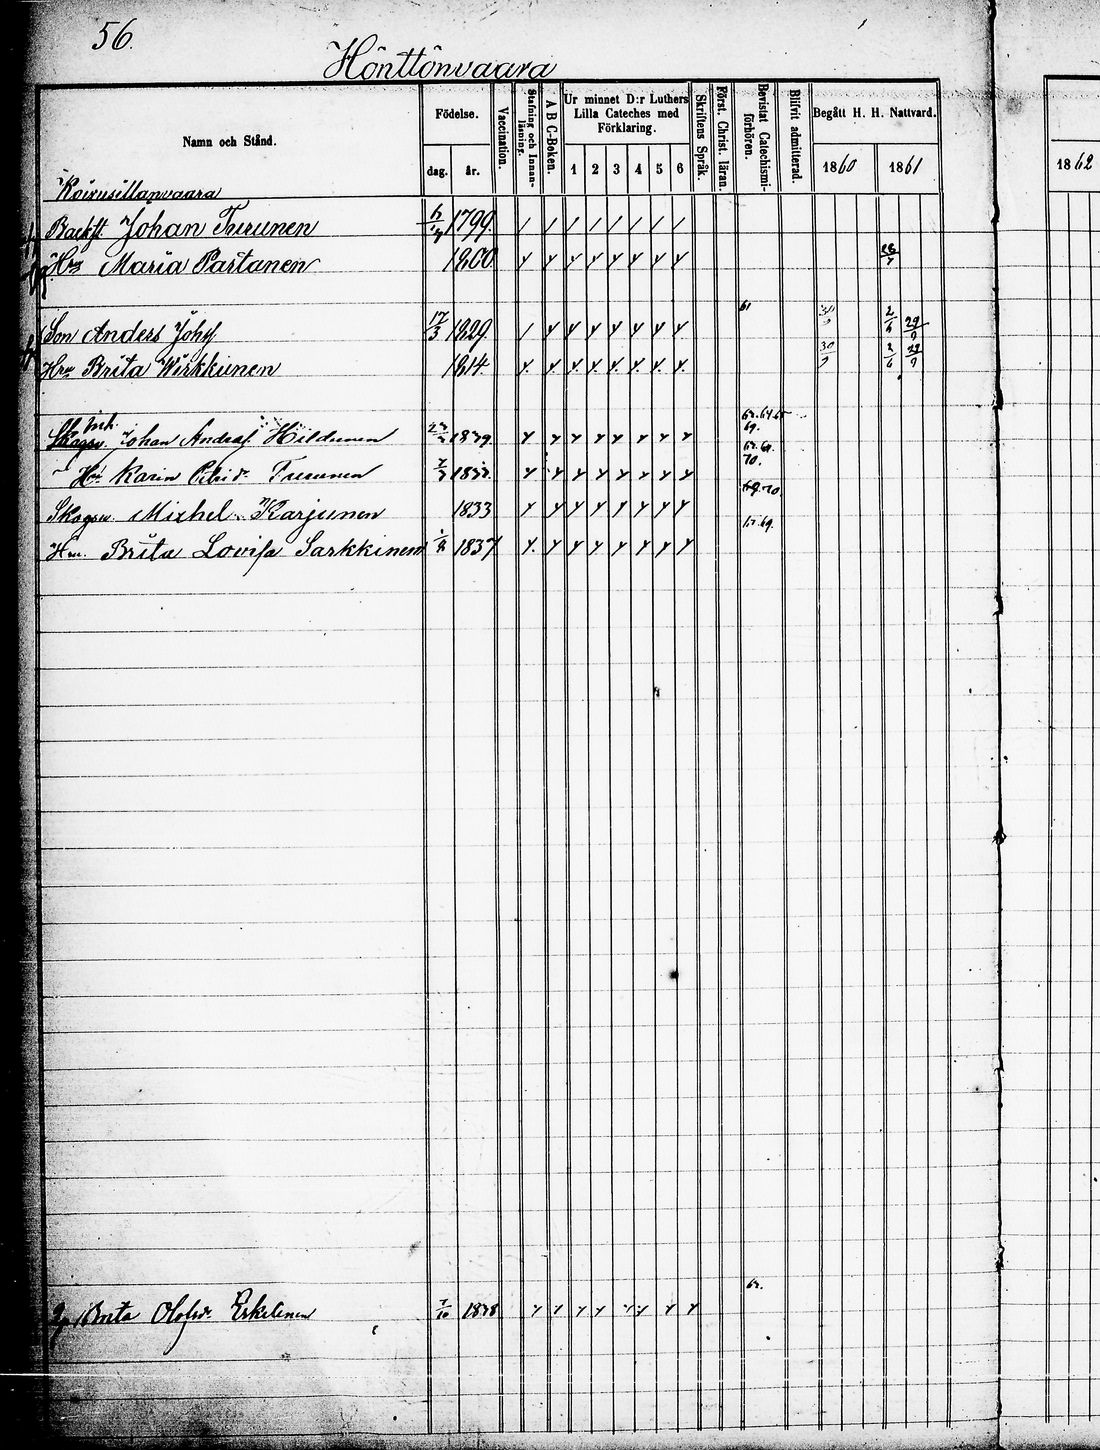 56.
Hönttönvaara
Namn och Stånd.
Födelse.
dag.
år.
Vaccination.
Stafning och Innanläsning.
A B C-Boken.
Ur minnet D:r Luthers Lilla Cateches med Förklaring.
1 2 3 4 5 6
Skriftens Språk.
Först. Christ. läran.
Bevistat Catechismiförhören.
Blifvit admitterad.
Begått H. H. Nattvard.
1860
1861
1862
Koirusillanvaara
Backst. Johan Turunen 1799.
Hru Maria Partanen 1800
Son Anders Johss 17/3 1829 61 2/6 29/9
Hru Brita Wirkkunen 1814 30/9 2/6 29/9
Johan Andrass Hildunen 1839
Hru Karin Turunen
Skogsv. Michel Karjunen 1833 69.70
Hru. Brita Lovisa Sarkkinen 1837
Brita Olofsdr Eskelinen 7/10 1838